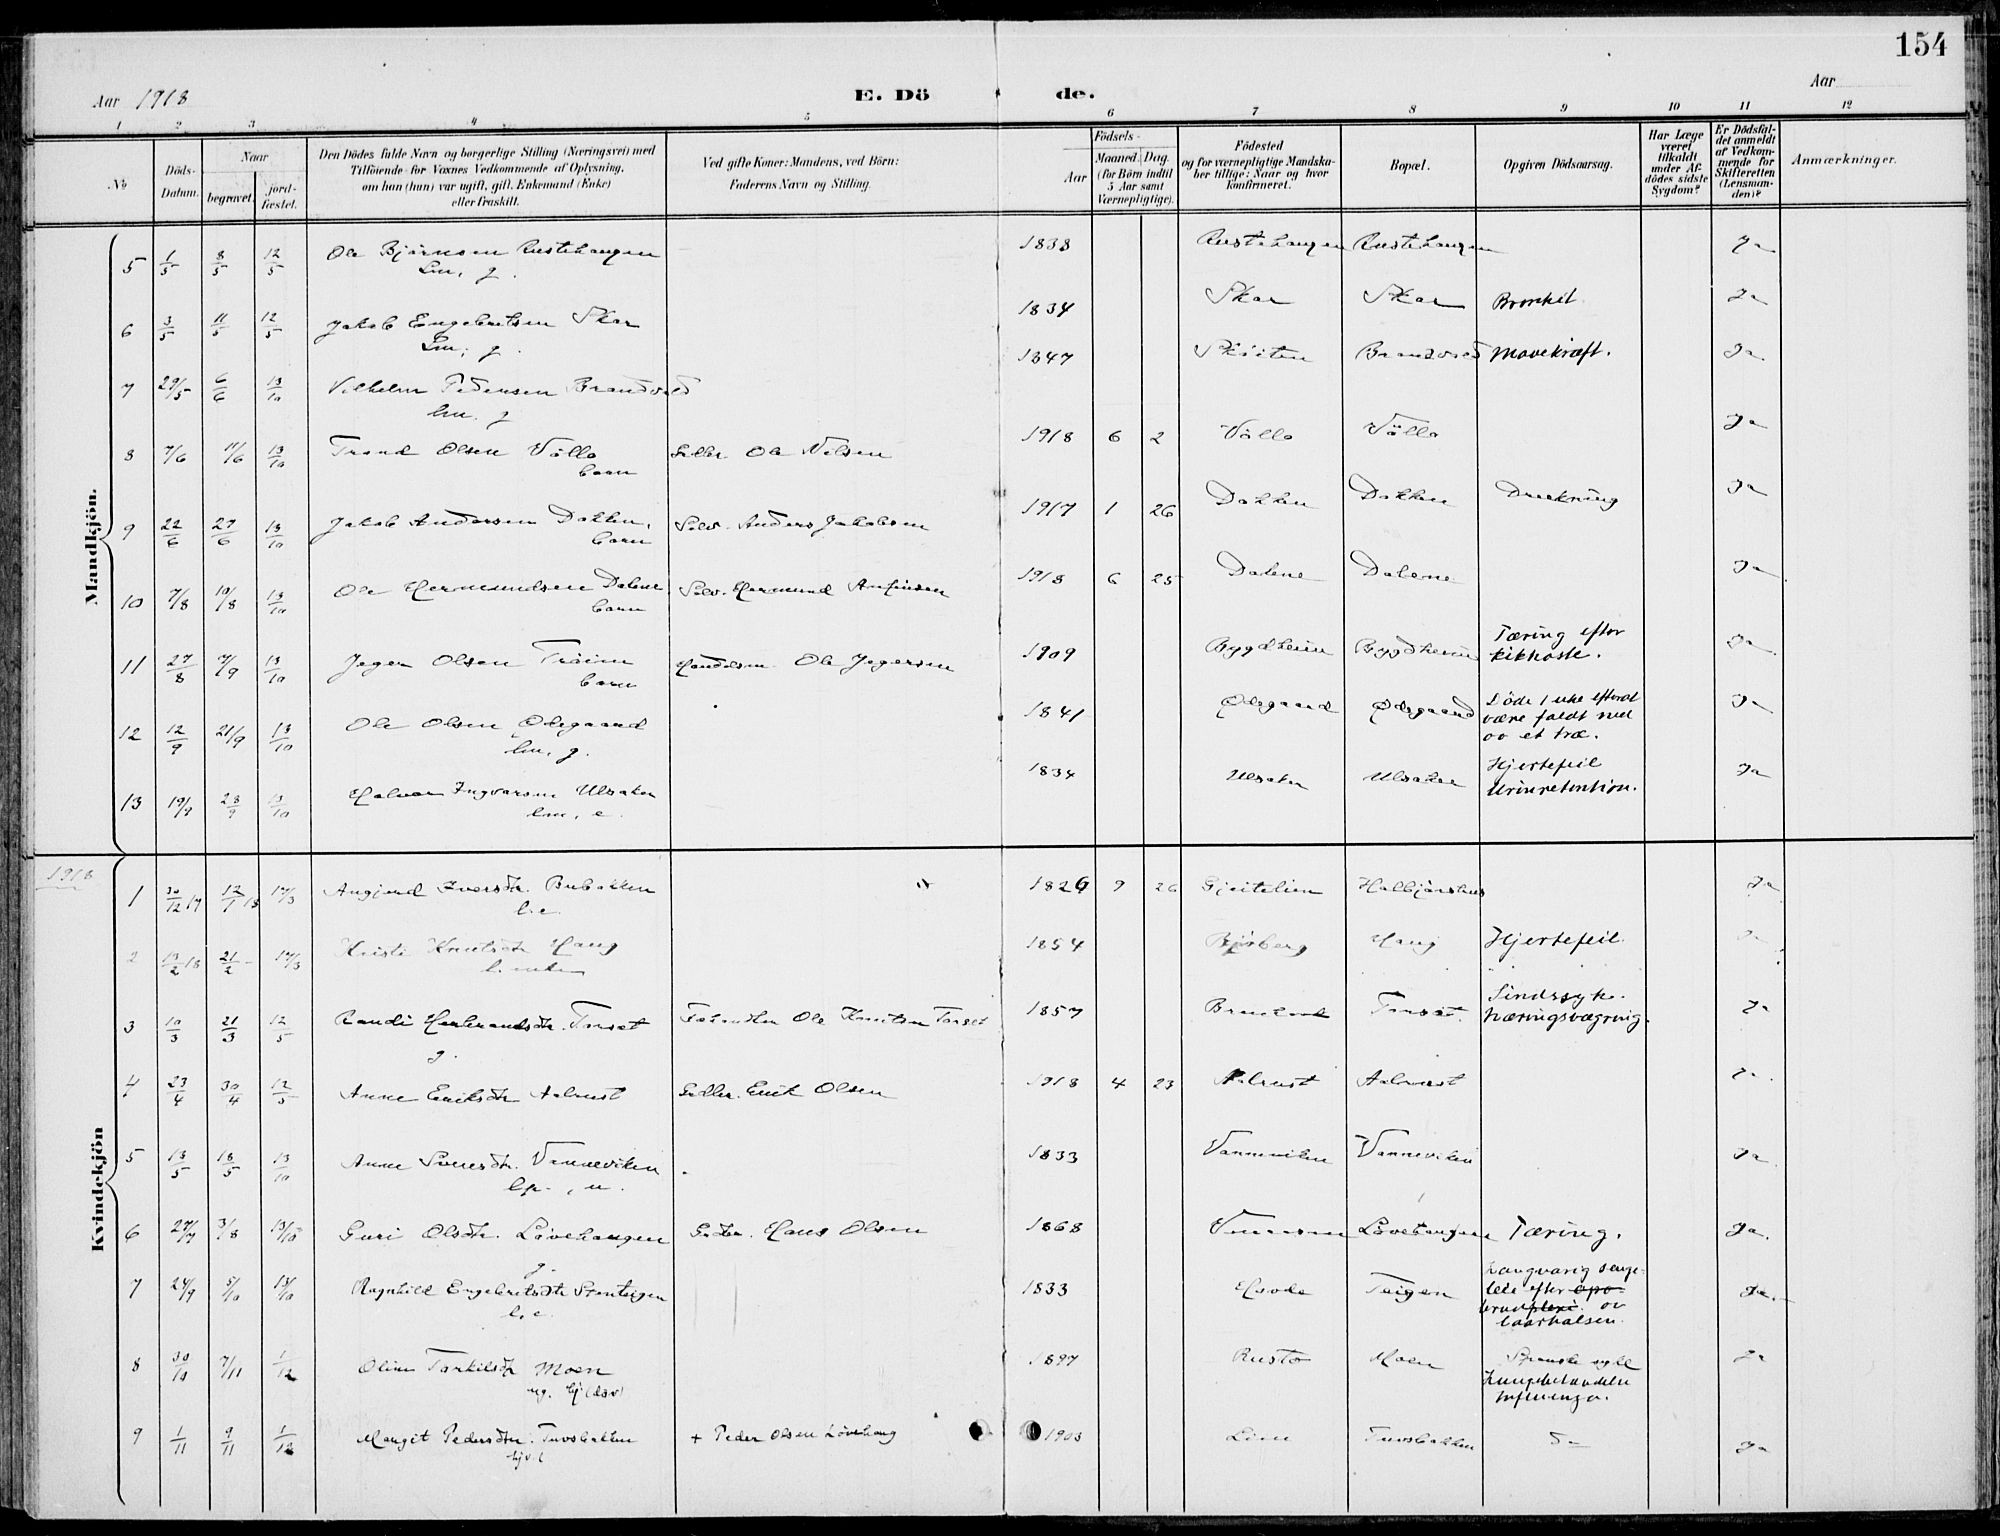 154
Aar 1918
E. Dö de.
Aar
1 2 3 4 5 6 7 8 9 10 11 12
No
Döds-Datum.
Naar
begravet.
jord-fæstet.
Den Dödes fulde Navn og borgerlige Stilling (Næringsvei) med
Tilföiende for Voxnes Vedkommende af Oplysning,
om han (hun) var ugift, gift, Enkemand (Enke)
eller fraskilt.
Ved gifte Koner: Mandens, ved Börn:
Faderens Navn og Stilling.
Födsels-
Aar
Maaned. Dag.
(for Börn indtil
5 Aar samt
Værnepligtige).
Födested
og for værnepligtige Mandska-
ber tillige: Naar og hvor
konfirmeret.
Bopæl.
Opgiven Dödsaarsag.
Har Læge
været
tilkaldt
under Af-
dödes sidste
Sygdom?
Er Dödsfal-
det anmeldt
af Vedkom-
mende for
Skifteretten
(Lensman-
den)?
Anmærkninger.
Mandkjön.
5 1/5 8/5 12/5 Ole Björnsen Rustehaugen 1838 Rustehaugen Rustehaugen Ja
Lm, g.
6 3/5 11/5 12/5 Jakob Engebretsen Skar 1834 Skar Skar Bronkit. Ja
Lm, g.
7 29/5 6/6 13/10 Vilhelm Pedersen Brandvold 1847 Brandvold Mavekræft. Ja.
lm. g
8 7/6 11/6 13/10 Trond Olsen Völlo Sedler Ole Nilsen 1918 6 2 Völlo Völlo Ja
barn
9 22/6 27/6 13/10 Jakob Andersen Dokken, Selv. Anders Jakobsen 1917 1 26 Dokken Dokken Drukning Ja
barn
10 7/8 10/8 13/10 Ole Hermundsen Dalene Selv. Hermund Anfinsen 1918 6 25 Dalene Dalene Ja
barn
11 27/8 7/9 13/10 Jeger Olsen Tröim Handelsm. Ole Jegersen 1909 Bygdheim Bygdheim Tæring efter
kikhoste. Ja
barn
12 12/9 21/9 13/10 Ole Olsen Ødegaard 1841 Ødegaard Ødegaard Döde 1 uke efterat
være faldt ned
av et træ. Ja
lm. g.
13 19/9 28/9 13/10 Halvor Ingvarsen Ulsaker 1834 Ulsaker Ulsaker Hjertefeil
Urinretention. Ja
lm, e.
1918
Kvindekjön
1 30/12 17 12/1 18 17/3 Angjerd Iversdtr. Bubakken 1826 9 26 Gjeitelien Halbjörshus Ja
l. e.
2 13/2 18 21/2 - 17/3 Kristi Knutsdtr Haug 1854 Björberg Haug Hjertefeil. Ja
l. enke
3 10/3 21/3 12/5 Randi Herbrandsdtr. Torset Ole Knutsen Torset 1857 Torset. Sindssyk.
Næringsvægring. Ja
g.
4 23/4 30/4 12/5 Anne Eriksdtr Aalrust Sedler. Erik Olsen 1918 4 23 Aalrust Aalrust Ja.
5 13/5 18/5 13/10 Anne Sveresdtr. Vanneviken 1833 Vanneviken Vanneviken Ja.
, u.
6 27/7 3/8 13/10 Guri Olsdtr. Lövehaugen Hans Olsen 1868 Lövehaugen Tæring. Ja.
g.
7 24/9 5/10 13/10 Ragnhild Engebretsdtr Stenteigen 1833 Teigen Langvarig senge-
leie efter apo-
brud plexi. av
laarhalsen. Ja.
l. e.
8 30/10 7/11 1/12 Oline Torkilsdtr Moen 1897 Rusto Moen Spanske syke
influenza. Ja
ug. tj (dav)
9 1/11 9/11 1/12 Margit Pedersdtr. Tuvsbakken + Peder Olsen Lövehaug 1903 Lien Tuvsbakken Ja